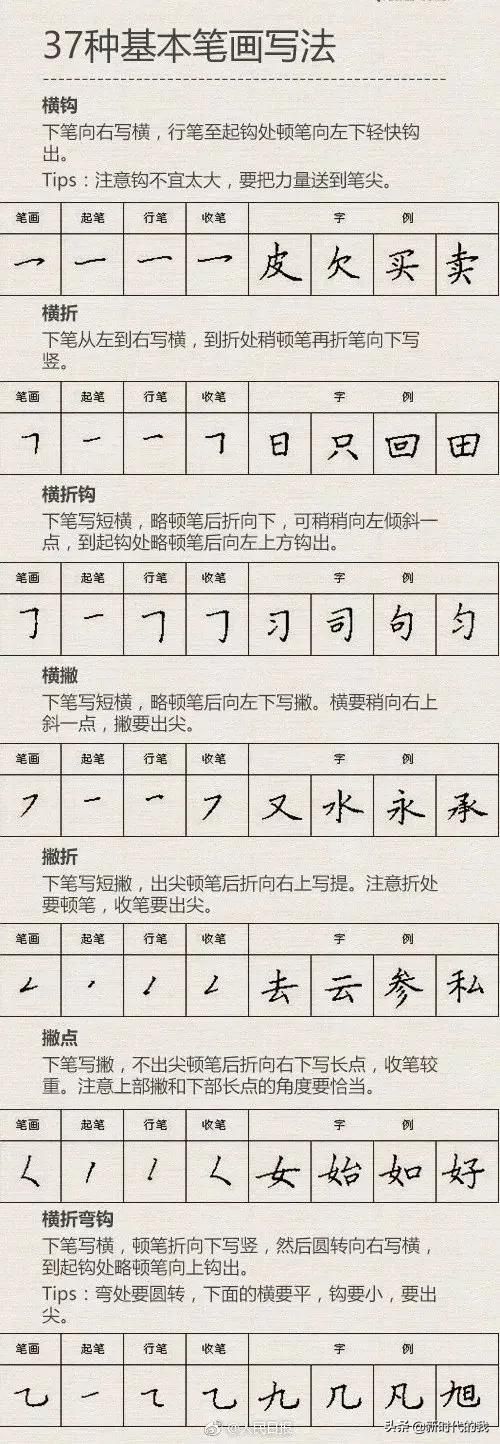 37种基本笔画写法
横钩
下笔向右写横，行笔至起钩处顿笔向左下轻快钩
出。
Tips：注意钩不宜太大，要把力量送到笔尖。
笔画 起笔 行笔 收笔 字 例
皮 欠 买 卖
横折
下笔从左到右写横，到折处稍顿笔再折笔向下写
竖。
笔画 起笔 行笔 收笔 字 例
日 只 回 田
横折钩
下笔写短横，略顿笔后折向下，可稍稍向左倾斜一
点，到起钩处略顿笔后向左上方钩出。
笔画 起笔 行笔 收笔 字 例
习 司 句 匀
横撇
下笔写短横，略顿笔后向左下写撇。横要稍向右上
斜一点，撇要出尖。
笔画 起笔 行笔 收笔 字 例
又 水 永 承
撇折
下笔写短撇，出尖顿笔后折向右上写提。注意折处
要顿笔，收笔要出尖。
笔画 起笔 行笔 收笔 字 例
去 云 参 私
撇点
下笔写撇，不出尖顿笔后折向右下写长点，收笔较
重。注意上部撇和下部长点的角度要恰当。
笔画 起笔 行笔 收笔 字 例
女 始 如 好
横折弯钩
下笔写横，顿笔折向下写竖，然后圆转向右写横，
到起钩处略顿笔向上钩出。
Tips：弯处要圆转，下面的横要平，钩要小，要出
尖。
笔画 起笔 行笔 收笔 字 例
九 几 凡 旭
@人民日报
头条 @新时代的我